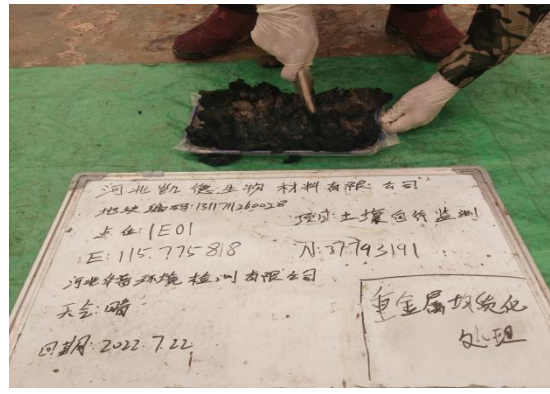 河北凯德生物材料有限公司
地块编码:1311711260028
项目:土壤自行监测
点位:1E01
E:115.775818
N:37.793191
河北华 环境检测有限公司
天气:晴
日期:2022.7.22
重金属 质化
处理